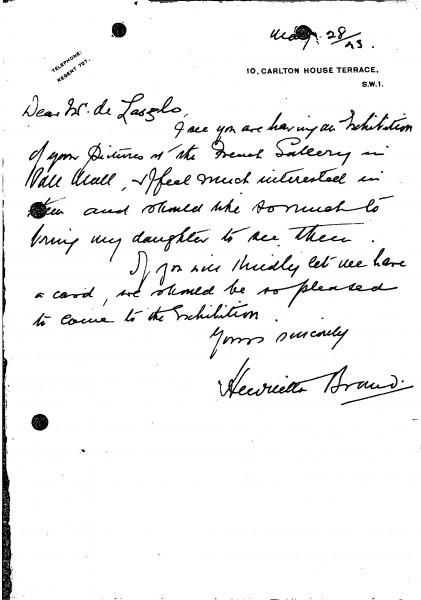 May 28/23.
TELEPHONE:
REGENT 727.
10, CARLTON HOUSE TERRACE,
S.W.1.
Dear Mr. de Laszlo,
I see you are having an Exhibition
of your Pictures at the French Gallery in
Pall Mall, & I feel much interested in
them and should like so much to
bring my daughter to see them.
If you will kindly let me have
a card, we should be so pleased
to come to the Exhibition.
Yours sincerely
Henrietta Brand.